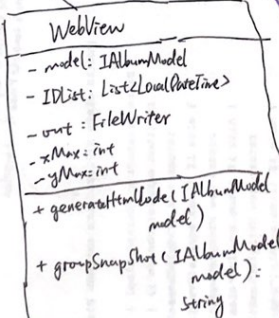 WebView
- model: IAlbumModel
- IDList: List<LocalDateTime>
- out: FileWriter
- xMax: int
- yMax: int
+ generateHtmlCode(IAlbumModel
model)
+ groupSnapShot(IAlbumModel
model):
String